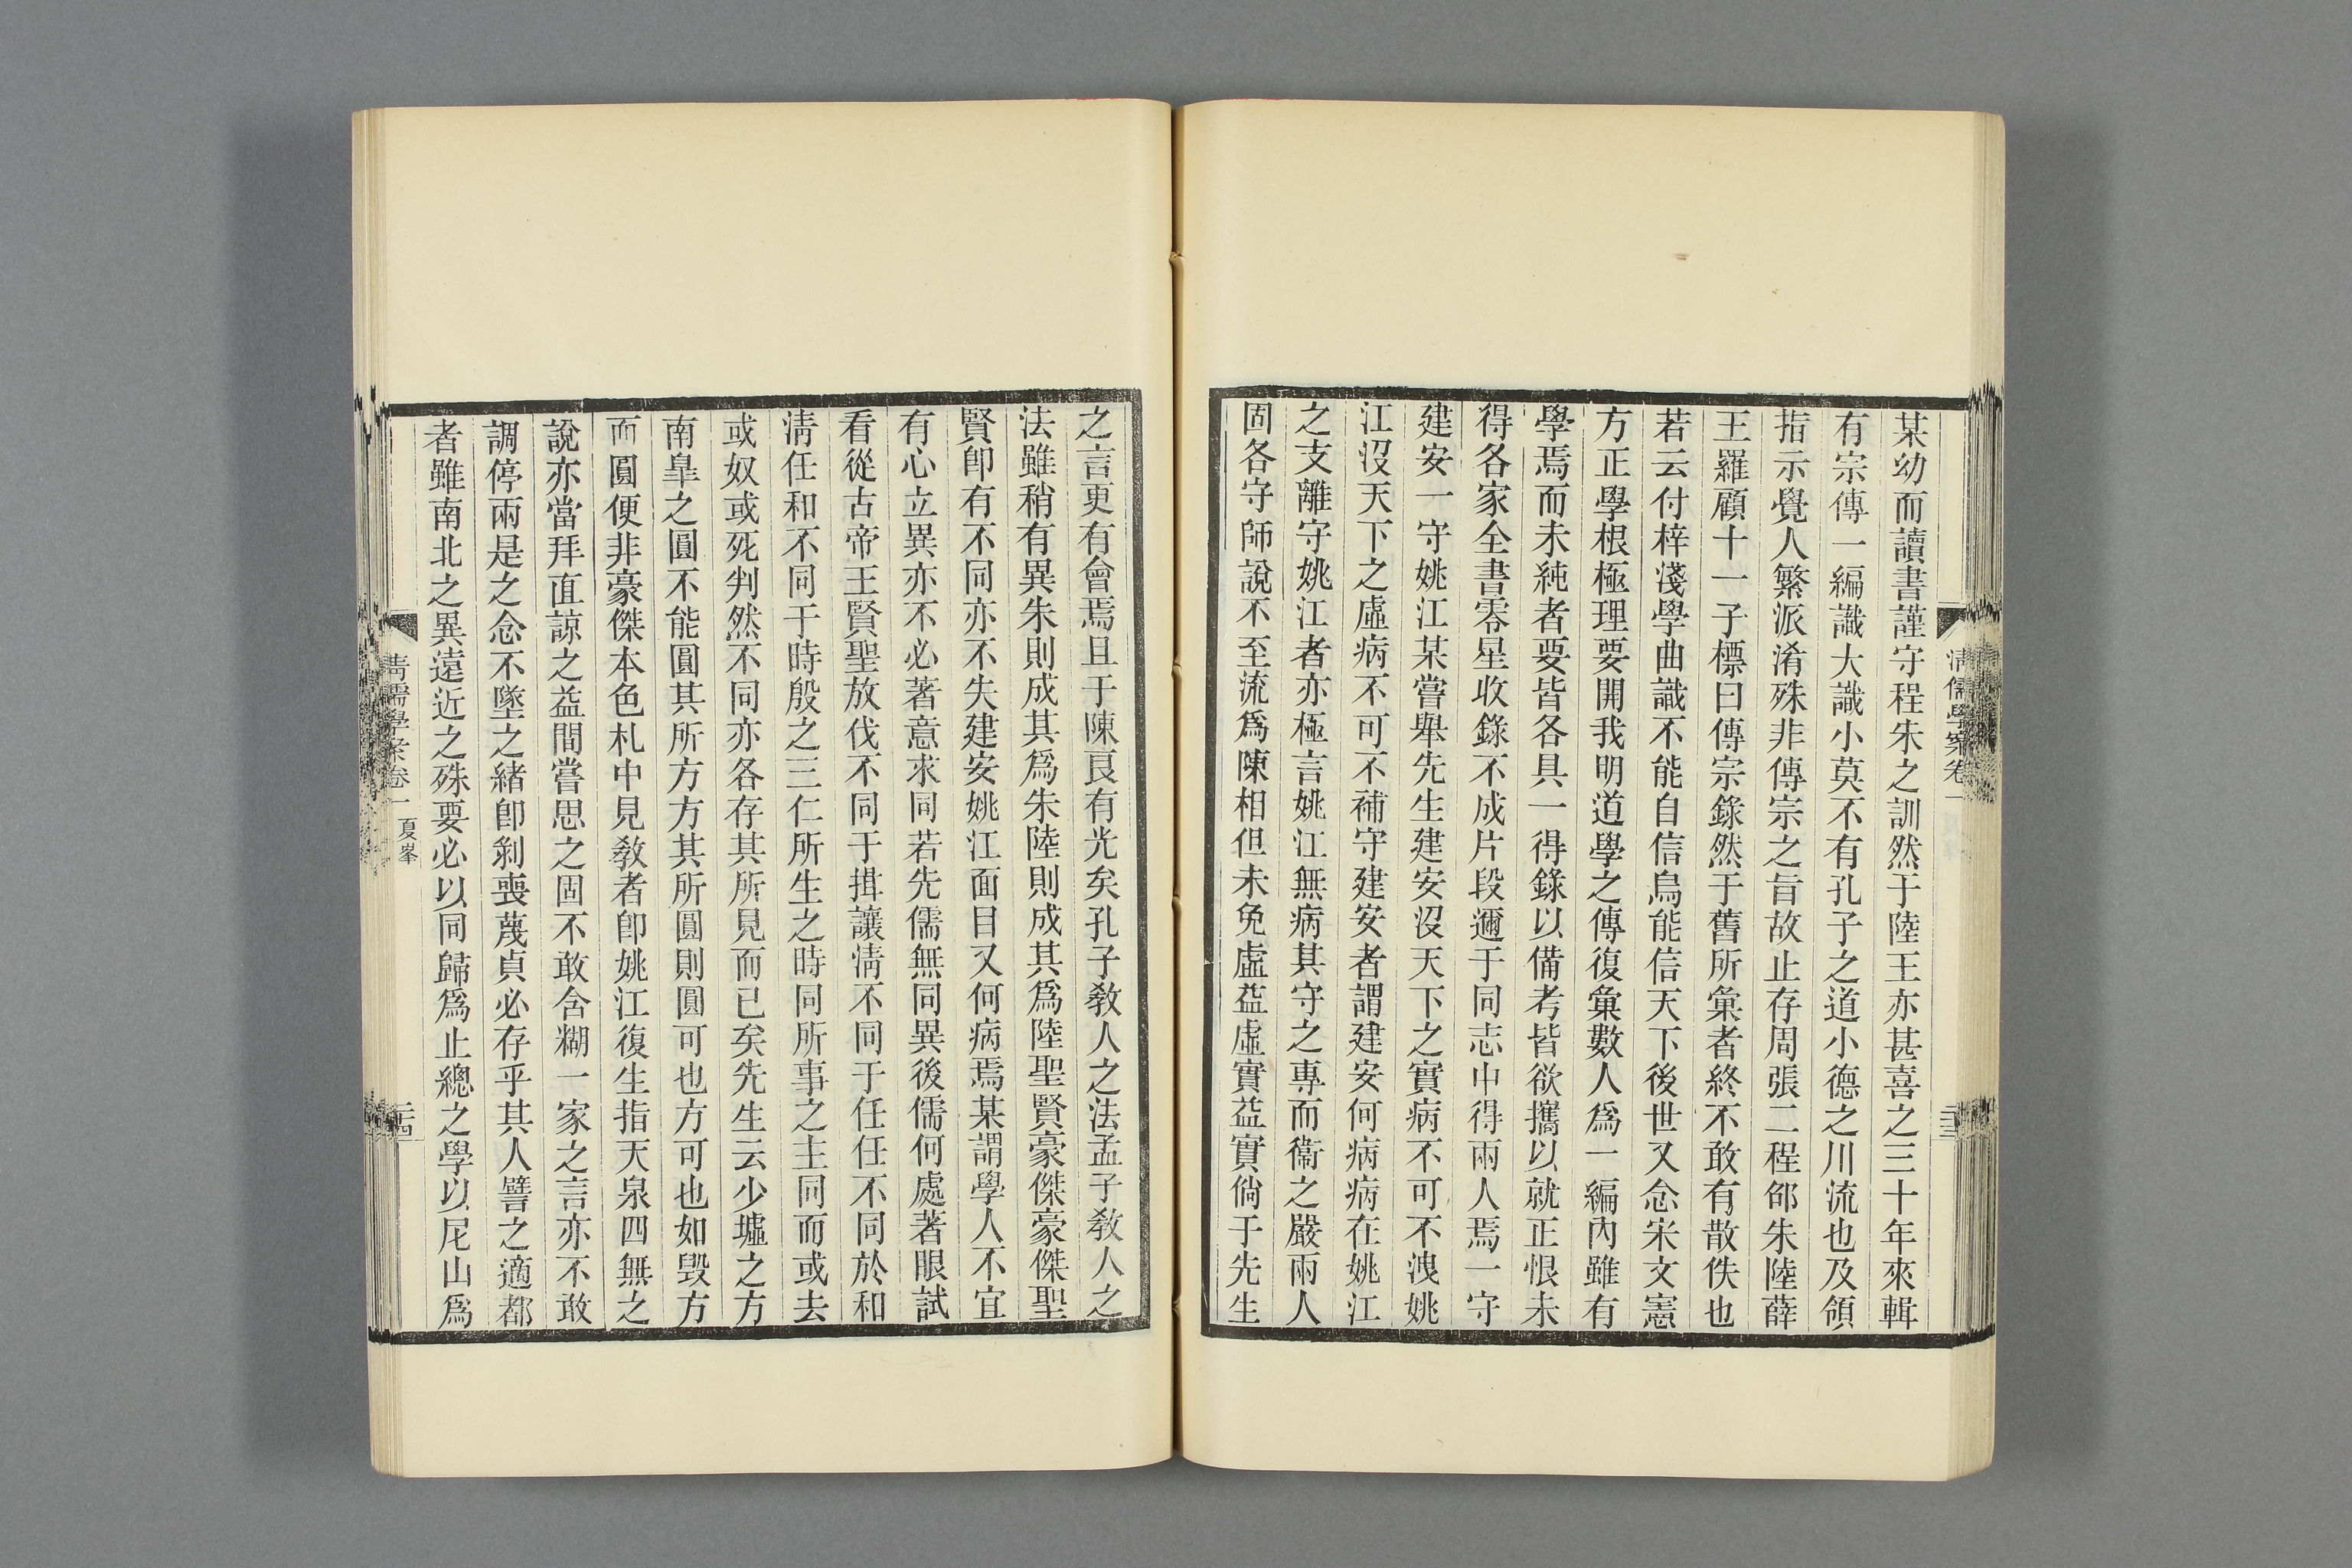 清儒學案卷一
某幼而讀書謹守程朱之訓然于陸王亦甚喜之三十年來輯
有宗傳一編識大識小莫不有孔子之道小德之川流也及領
指示覺人繁派淆殊非傳宗之旨故止存周張二程邵朱陸薛
王羅顧十一子標曰傳宗錄然于舊所彙者終不敢有散佚也
若云付梓淺學曲識不能自信烏能信天下後世又念宋文憲
方正學根極理要開我明道學之傳復彙數人爲一編內雖有
學焉而未純者要皆各具一得錄以備考皆欲攜以就正恨未
得各家全書零星收錄不成片段邇于同志中得兩人焉一守
建安一守姚江某嘗舉先生建安沒天下之實病不可不洩姚
江沒天下之虛病不可不補守建安者謂建安何病病在姚江
之支離守姚江者亦極言姚江無病其守之專而衞之嚴兩人
固各守師說不至流爲陳相但未免虛益虛實益實倘于先生
之言更有會焉且于陳良有光矣孔子敎人之法孟子敎人之
法雖稍有異朱則成其爲朱陸則成其爲陸聖賢豪傑豪傑聖
賢卽有不同亦不失建安姚江面目又何病焉某謂學人不宜
有心立異亦不必著意求同若先儒無同異後儒何處著眼試
看從古帝王賢聖放伐不同于揖讓淸不同于任任不同於和
淸任和不同于時殷之三仁所生之時同所事之主同而或去
或奴或死判然不同亦各存其所見而已矣先生云少墟之方
南皐之圓不能圓其所方方其所圓則圓可也方可也如毀方
而圓便非豪傑本色札中見敎者卽姚江復生指天泉四無之
說亦當拜直諒之益間嘗思之固不敢含糊一家之言亦不敢
調停兩是之念不墜之緖卽剝喪蔑貞必存乎其人譬之適都
者雖南北之異遠近之殊要必以同歸爲止總之學以尼山爲
清儒學案卷一 夏峯 二十四